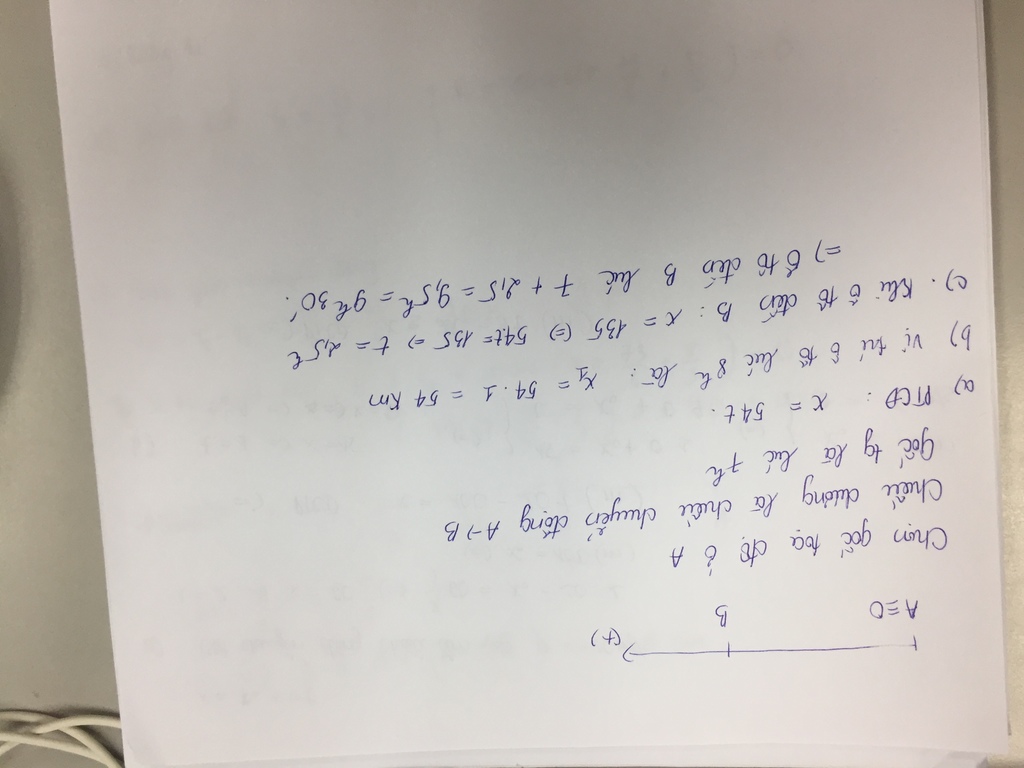 (+)
A≡O B
Chọn gốc toạ độ ở A
Chiều dương là chiều chuyển động A→B
gốc tg là lúc 7h
a) PTCĐ : x = 54t.
b) Vị trí ô tô lúc 8h là : x₁ = 54.1 = 54 Km
c). Khi ô tô đến B : x = 135 (=) 54t = 135 => t = 2,5h
=) Ô tô đến B lúc 7 + 2,5 = 9,5h = 9h30'.